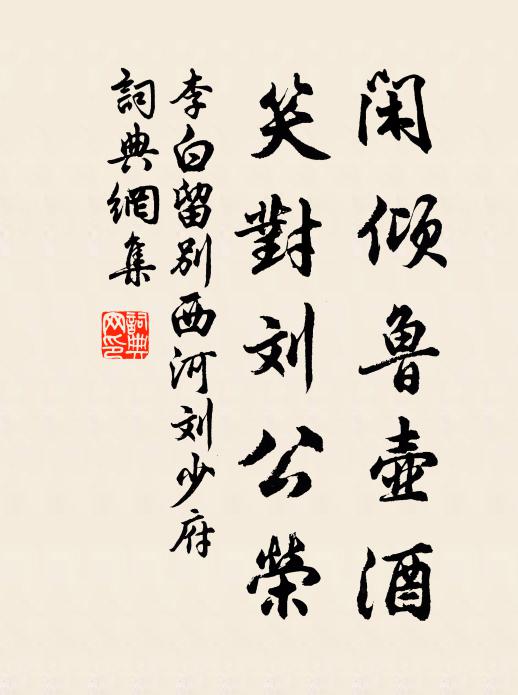 闲倾鲁壶酒
笑對刘公荣
李白留别西河刘少府
詞典網集
詞典
网印